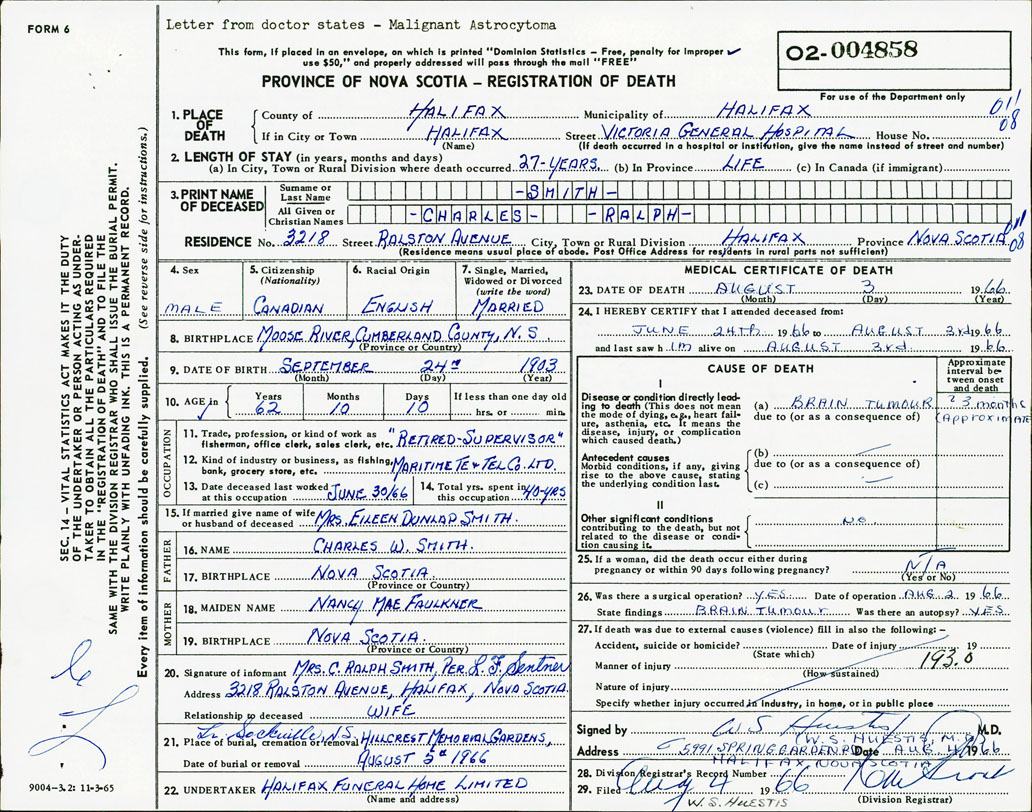 FORM 6
Letter from doctor states - Malignant Astrocytoma
This form, if placed in an envelope, on which is printed "Dominion Statistics – Free, penalty for improper
use $50," and properly addressed will pass through the mail "FREE"
02-004858
PROVINCE OF NOVA SCOTIA – REGISTRATION OF DEATH
For use of the Department only
SEC. 14 – VITAL STATISTICS ACT MAKES IT THE DUTY
OF THE UNDERTAKER OR PERSON ACTING AS UNDER-
TAKER TO OBTAIN ALL THE PARTICULARS REQUIRED
IN THE "REGISTRATION OF DEATH" AND TO FILE THE
SAME WITH THE DIVISION REGISTRAR WHO SHALL ISSUE THE BURIAL PERMIT.
WRITE PLAINLY WITH UNFADING INK. THIS IS A PERMANENT RECORD.
Every item of information should be carefully supplied. (See reverse side for instructions.)
1. PLACE OF DEATH
County of HALIFAX Municipality of HALIFAX 011 08
If in City or Town HALIFAX Street VICTORIA GENERAL HOSPITAL House No.
(Name) (If death occurred in a hospital or institution, give the name instead of street and number)
2. LENGTH OF STAY (in years, months and days)
(a) In City, Town or Rural Division where death occurred 27-YEARS. (b) In Province LIFE (c) In Canada (if immigrant)
3. PRINT NAME OF DECEASED
Surname or Last Name -SMITH-
All Given or Christian Names -CHARLES- -RALPH-
RESIDENCE No. 3218 Street RALSTON AVENUE City, Town or Rural Division HALIFAX Province NOVA SCOTIA 011 08
(Residence means usual place of abode. Post Office Address for residents in rural parts not sufficient)
4. Sex MALE
5. Citizenship (Nationality) CANADIAN
6. Racial Origin ENGLISH
7. Single, Married, Widowed or Divorced (write the word) MARRIED
8. BIRTHPLACE MOOSE RIVER, CUMBERLAND COUNTY, N.S.
(Province or Country)
9. DATE OF BIRTH SEPTEMBER 24TH 1903
(Month) (Day) (Year)
10. AGE in Years 62 Months 10 Days 10 If less than one day old hrs. or min.
OCCUPATION
11. Trade, profession, or kind of work as fisherman, office clerk, sales clerk, etc. "RETIRED-SUPERVISOR"
12. Kind of industry or business, as fishing, bank, grocery store, etc. MARITIME TE & TEL CO. LTD.
13. Date deceased last worked at this occupation JUNE 30/66 14. Total yrs. spent in this occupation 40-YRS
15. If married give name of wife or husband of deceased MRS. EILEEN DUNLAP SMITH.
FATHER
16. NAME CHARLES W. SMITH.
17. BIRTHPLACE NOVA SCOTIA.
(Province or Country)
MOTHER
18. MAIDEN NAME NANCY MAE FAULKNER
19. BIRTHPLACE NOVA SCOTIA.
(Province or Country)
20. Signature of informant MRS. C. RALPH SMITH, PER. L. F. Sentner
Address 3218 RALSTON AVENUE, HALIFAX, NOVA SCOTIA.
Relationship to deceased WIFE
Lr. Sackville, N.S.
21. Place of burial, cremation or removal HILLCREST MEMORIAL GARDENS,
Date of burial or removal AUGUST 5TH 1966
22. UNDERTAKER HALIFAX FUNERAL HOME LIMITED
(Name and address)
9004-3.2: 11-3-65
MEDICAL CERTIFICATE OF DEATH
23. DATE OF DEATH AUGUST 3 1966
(Month) (Day) (Year)
24. I HEREBY CERTIFY that I attended deceased from:
JUNE 24TH 1966 to AUGUST 3rd 1966
and last saw him alive on AUGUST 3rd. 1966
CAUSE OF DEATH
Approximate interval between onset and death
I
Disease or condition directly leading to death (This does not mean the mode of dying, e.g., heart failure, asthenia, etc. It means the disease, injury, or complication which caused death.)
(a) BRAIN TUMOUR ? 3 months
due to (or as a consequence of) (APPROXIMATE
Antecedent causes
Morbid conditions, if any, giving rise to the above cause, stating the underlying condition last.
(b)
due to (or as a consequence of)
(c)
II
Other significant conditions contributing to the death, but not related to the disease or condition causing it. NO
25. If a woman, did the death occur either during pregnancy or within 90 days following pregnancy? N/A
(Yes or No)
26. Was there a surgical operation? YES. Date of operation AUG 2 1966
State findings BRAIN TUMOUR Was there an autopsy? YES
27. If death was due to external causes (violence) fill in also the following: –
Accident, suicide or homicide? Date of injury 19
(State which)
Manner of injury 193.0
(How sustained)
Nature of injury
Specify whether injury occurred in industry, in home, or in public place
Signed by W S Huestis M.D.
(W. S. HUESTIS, M.D.)
Address 5991 SPRING GARDEN RD Date AUG 4 1966
HALIFAX, NOVA SCOTIA
28. Division Registrar's Record Number
29. Filed Aug 4 1966
(Division Registrar)
W. S. HUESTIS